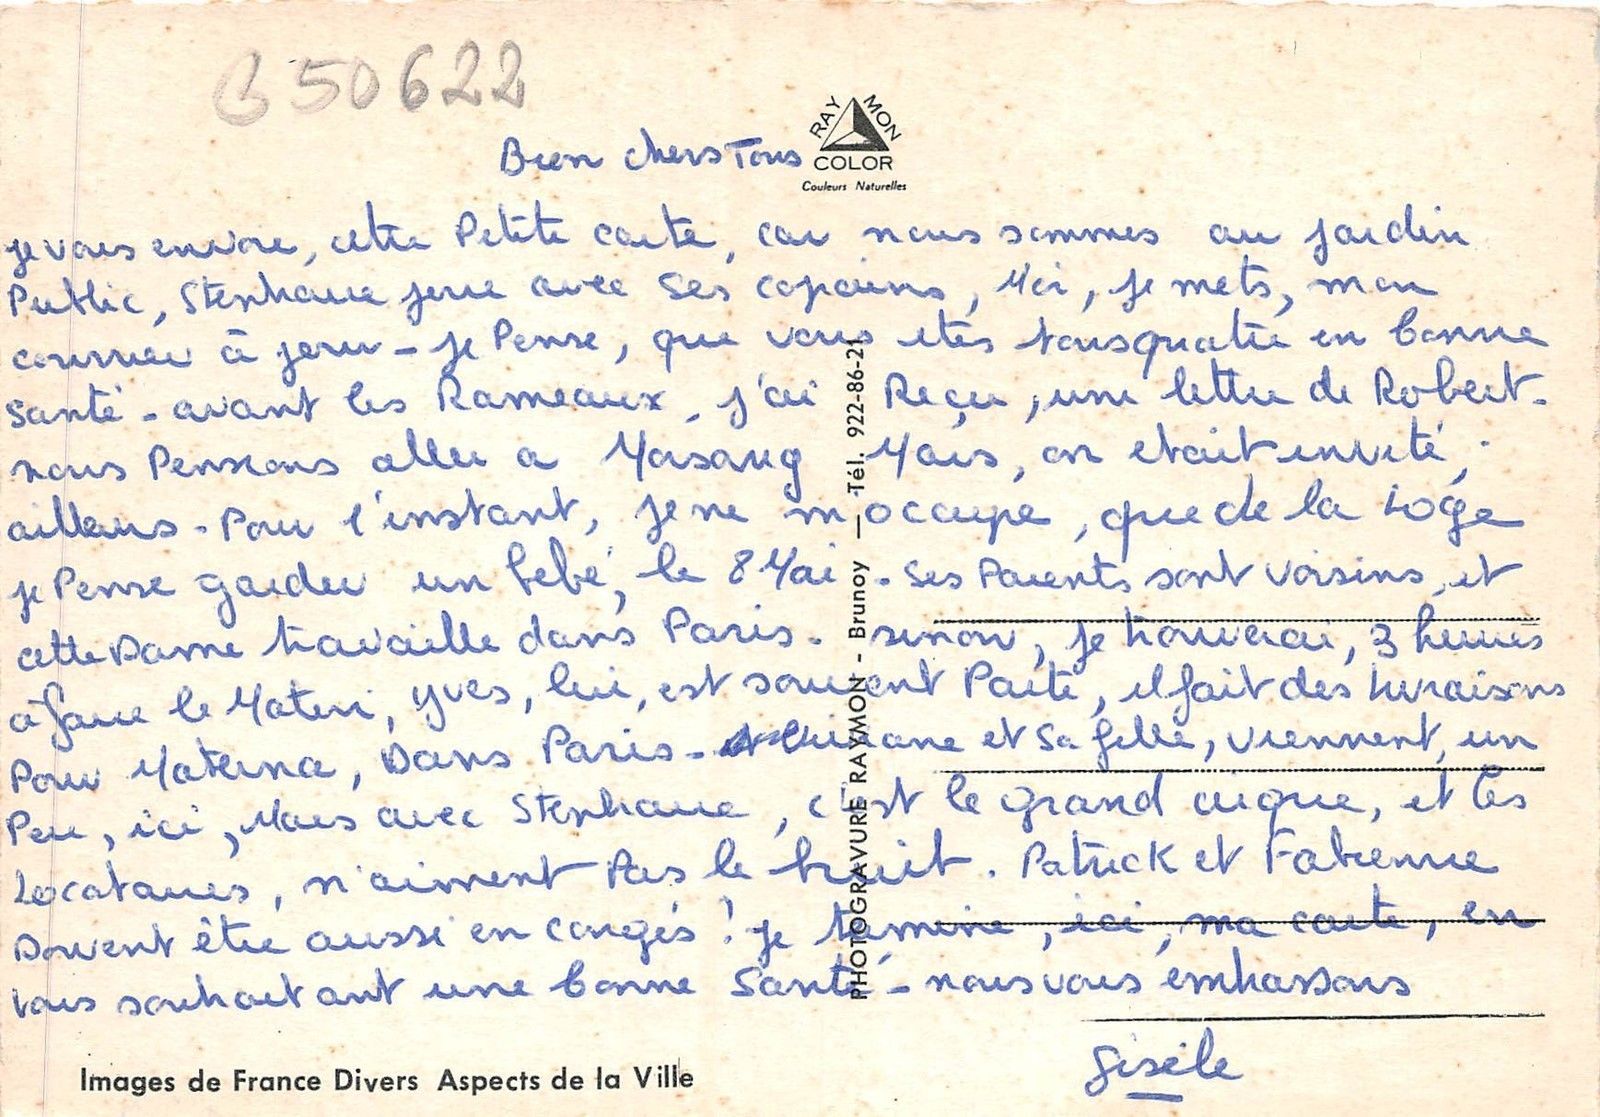 B 50622
RAYMON
COLOR
Couleurs Naturelles
Bien chers Tous
je vous envoie, cette Petite carte, car nous sommes au jardin
Public, Stephane joue avec ses copains, Moi, je mets, mon
courrier à jour - je Pense, que vous etes tous quatre en bonne
Santé - avant les Rameaux, j'ai Reçu, une lettre de Robert.
nous Pensions aller a Morsang Mais, on etait invité,
ailleurs - Pour l'instant, je ne m'occupe, que de la Loge
je Pense garder un bébé, le 8 Mai - ses Parents sont voisins, et
cette Dame travaille dans Paris - sinon, je trouverai, 3 heures
à faire le Matin, Yves, lui, est souvent Parti, il fait des livraisons
Pour Materna, Dans Paris - et sa fille, viennent, un
Peu, ici, Mais avec Stephane, c'est le grand cirque, et les
Locataires, n'aiment Pas le bruit. Patrick et Fabienne
Doivent être aussi en congés ! je termine, ici, ma carte, en
vous souhaitant une bonne Santé - nous vous embrassons
Gisèle
PHOTOGRAVURE RAYMON - Brunoy — Tél. 922-86-21
Images de France Divers Aspects de la Ville